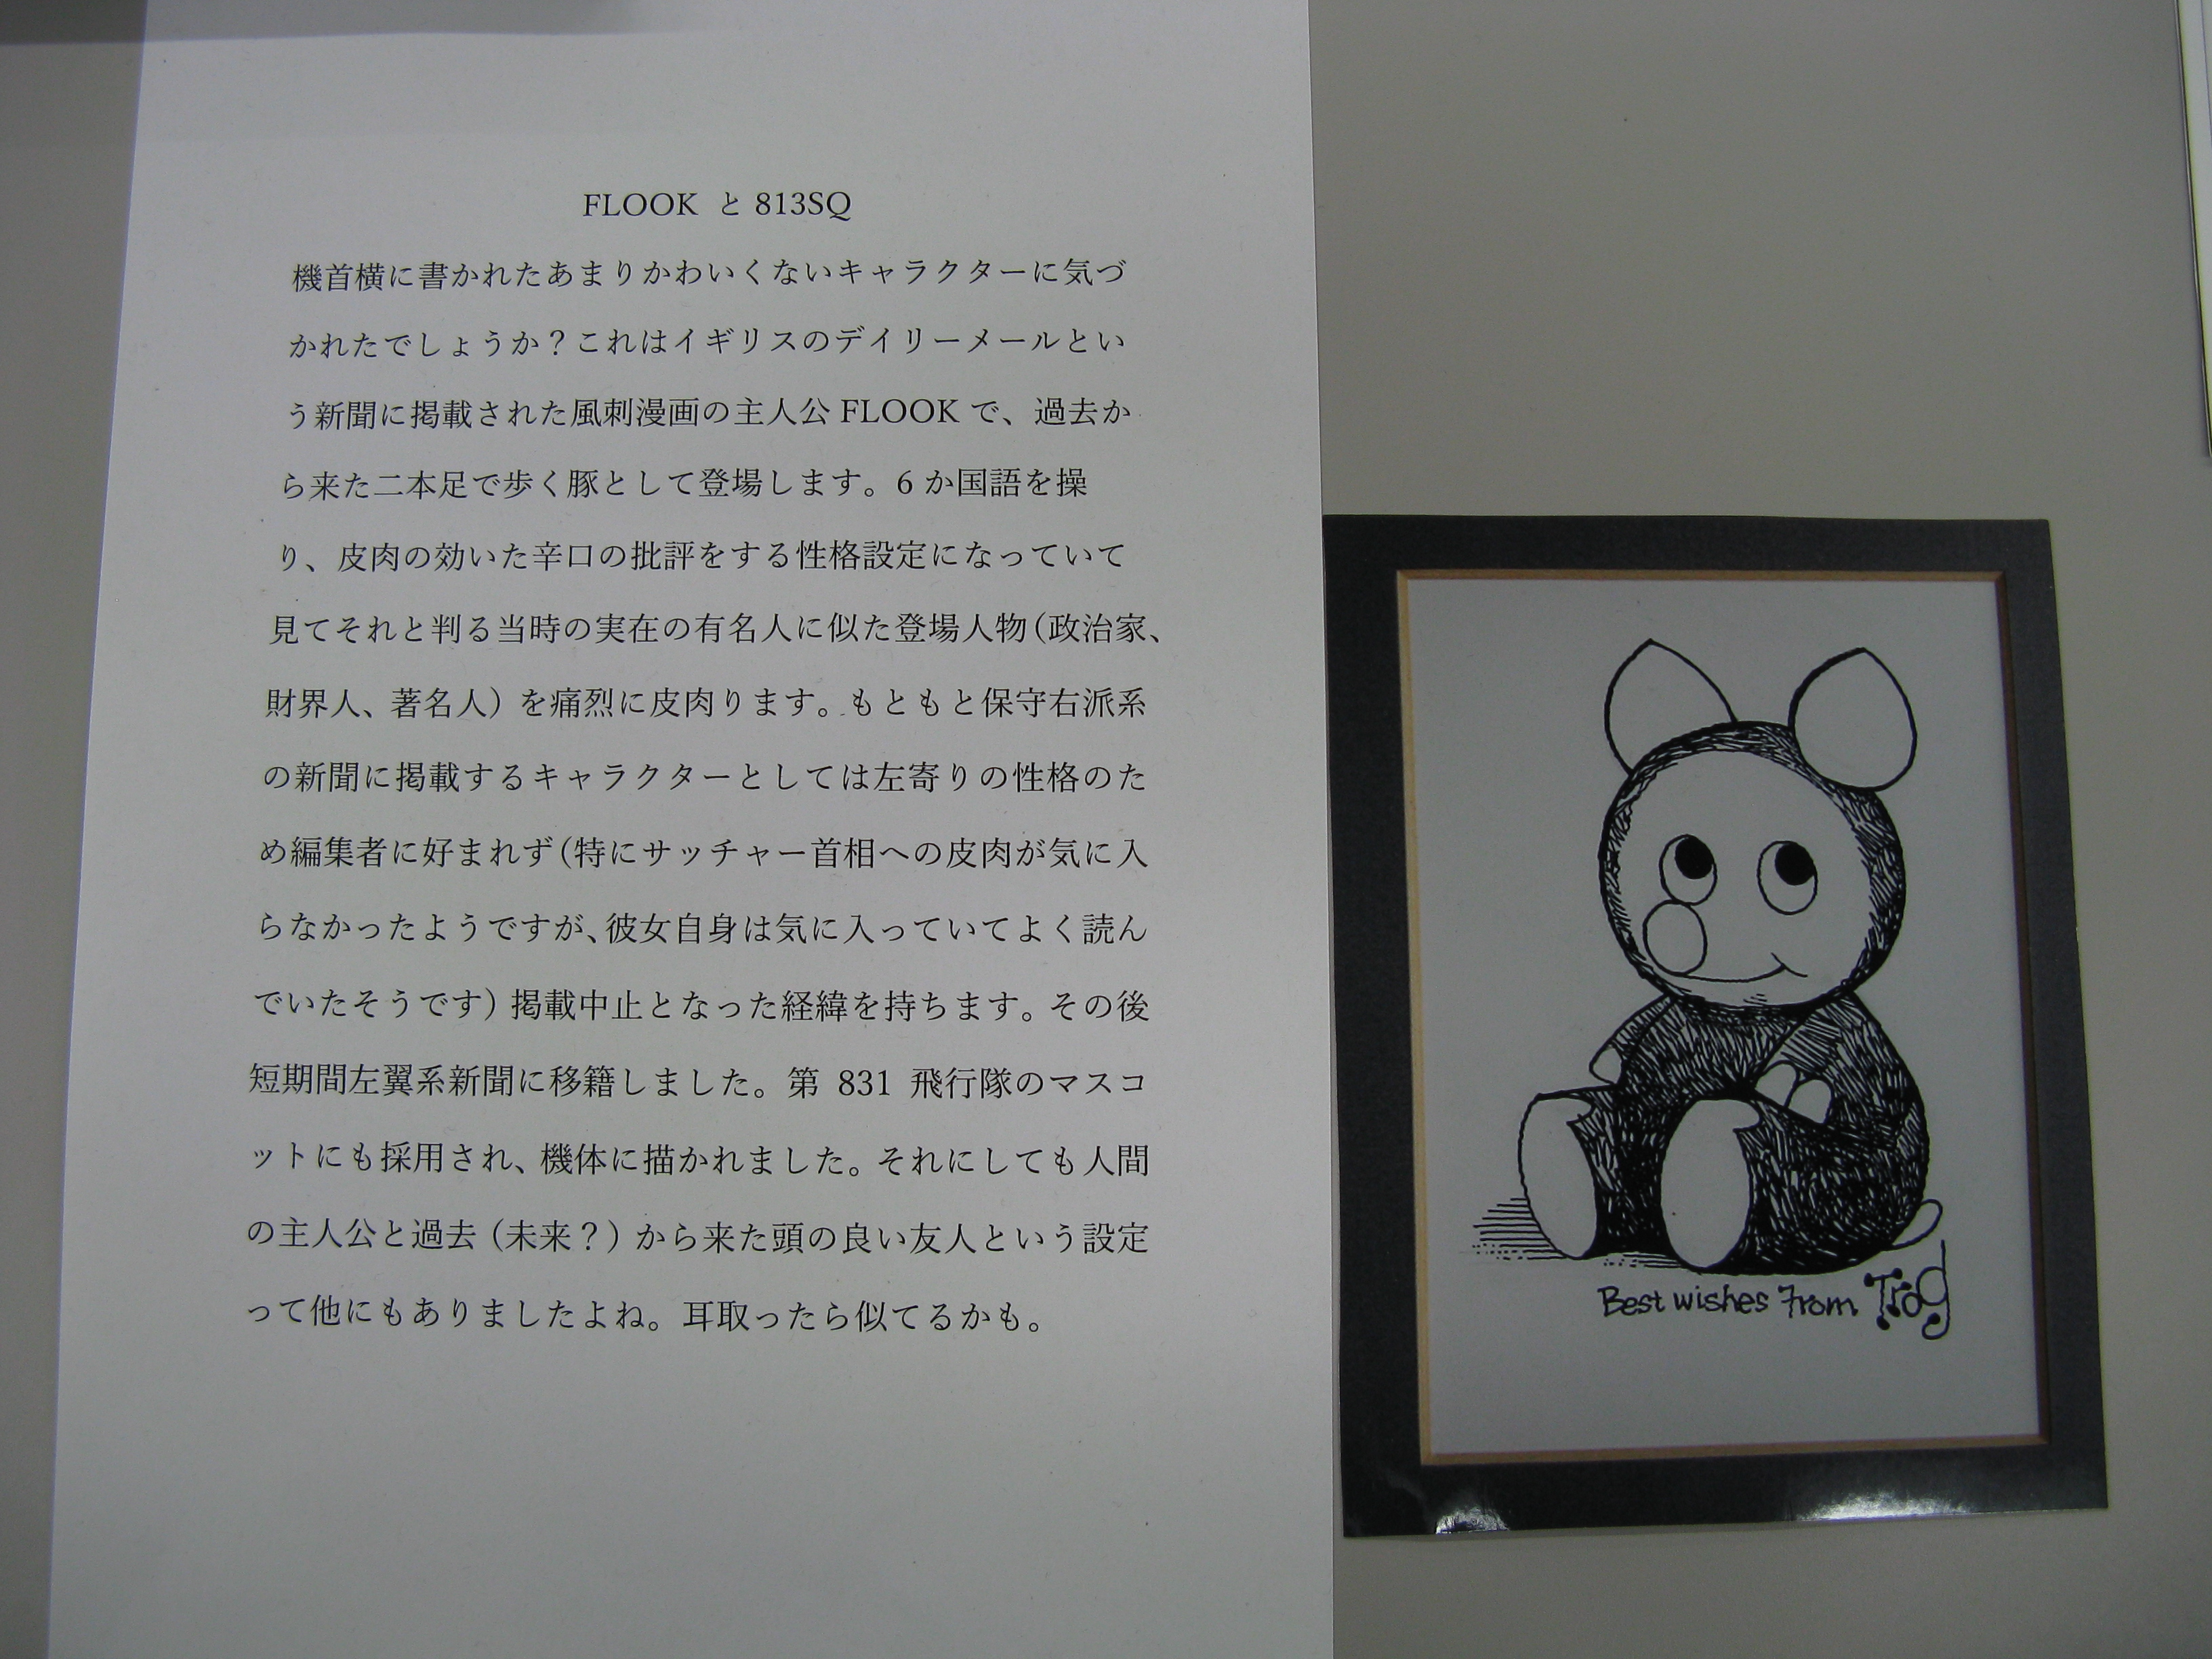 FLOOK と 813SQ
機首横に書かれたあまりかわいくないキャラクターに気づ
かれたでしょうか？これはイギリスのデイリーメールとい
う新聞に掲載された風刺漫画の主人公 FLOOK で、過去か
ら来た二本足で歩く豚として登場します。6 か国語を操
り、皮肉の効いた辛口の批評をする性格設定になっていて
見てそれと判る当時の実在の有名人に似た登場人物（政治家、
財界人、著名人）を痛烈に皮肉ります。もともと保守右派系
の新聞に掲載するキャラクターとしては左寄りの性格のた
め編集者に好まれず（特にサッチャー首相への皮肉が気に入
らなかったようですが、彼女自身は気に入っていてよく読ん
でいたそうです）掲載中止となった経緯を持ちます。その後
短期間左翼系新聞に移籍しました。第 831 飛行隊のマスコ
ットにも採用され、機体に描かれました。それにしても人間
の主人公と過去（未来？）から来た頭の良い友人という設定
って他にもありましたよね。耳取ったら似てるかも。
Best wishes from Trog